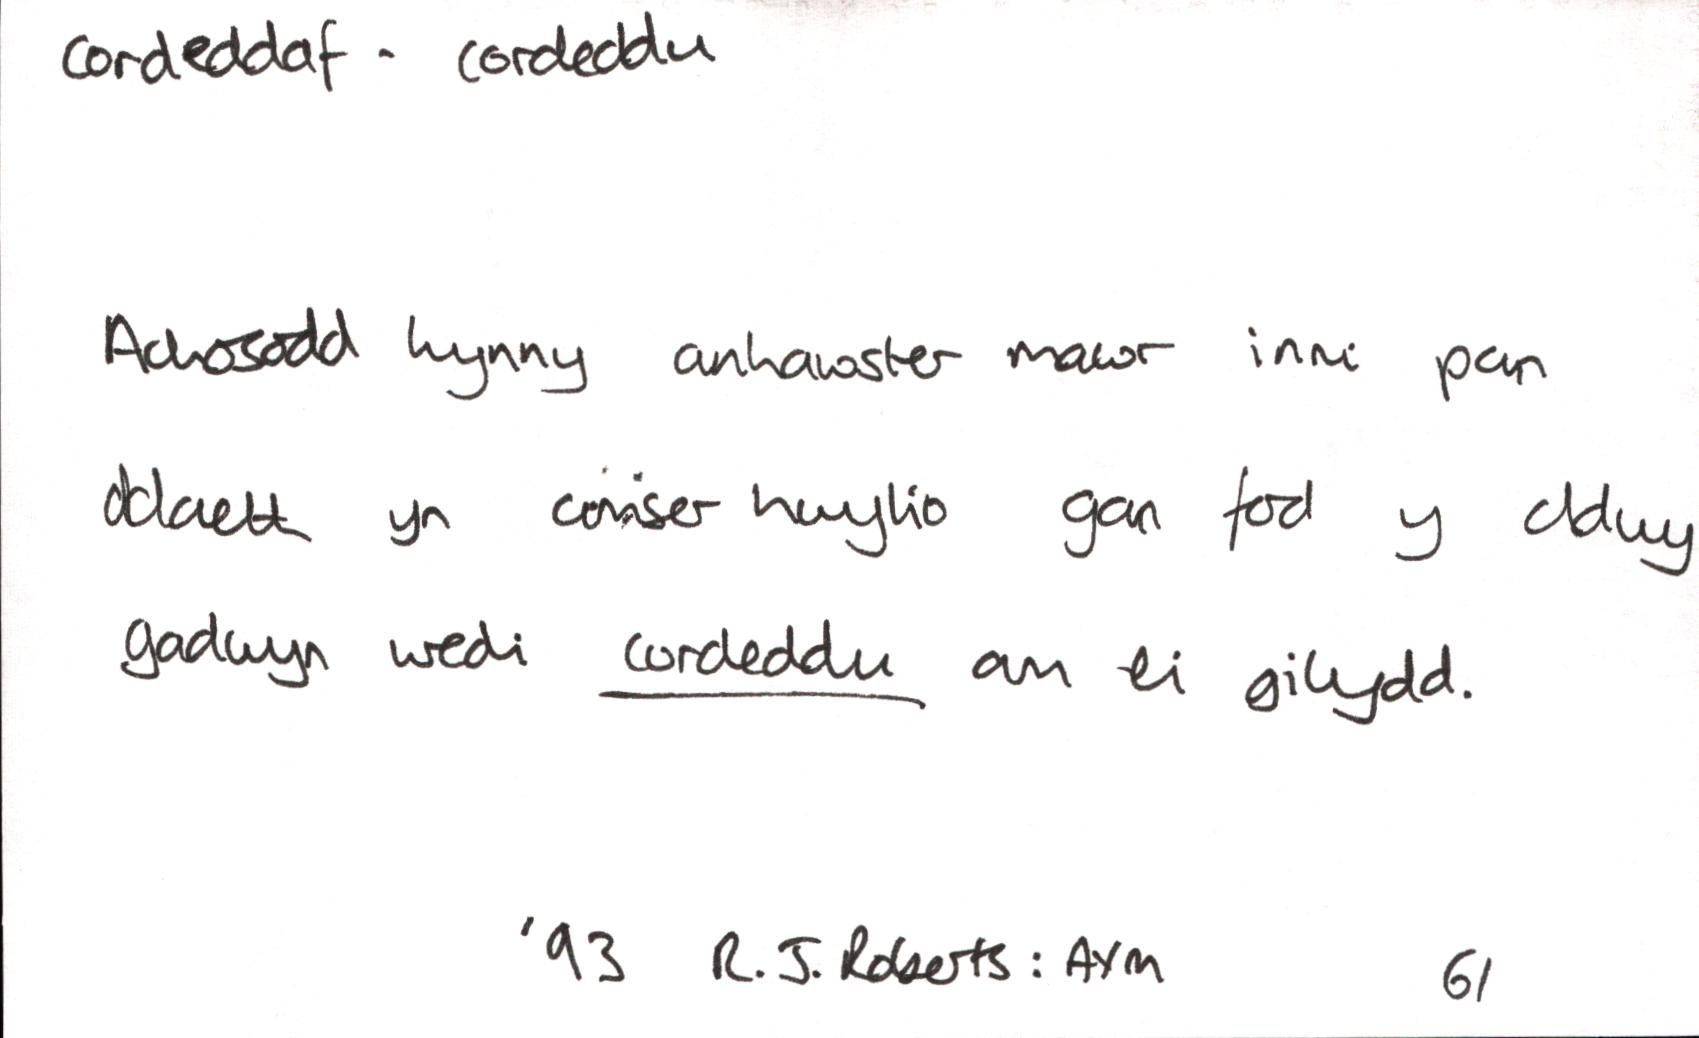 cordeddaf - cordeddu
Achosodd hynny anhawster mawr inni pan
ddaeth yn amser hwylio gan fod y ddwy
gadwyn wedi cordeddu am ei gilydd.
'93 R. J. Roberts: AYM 61